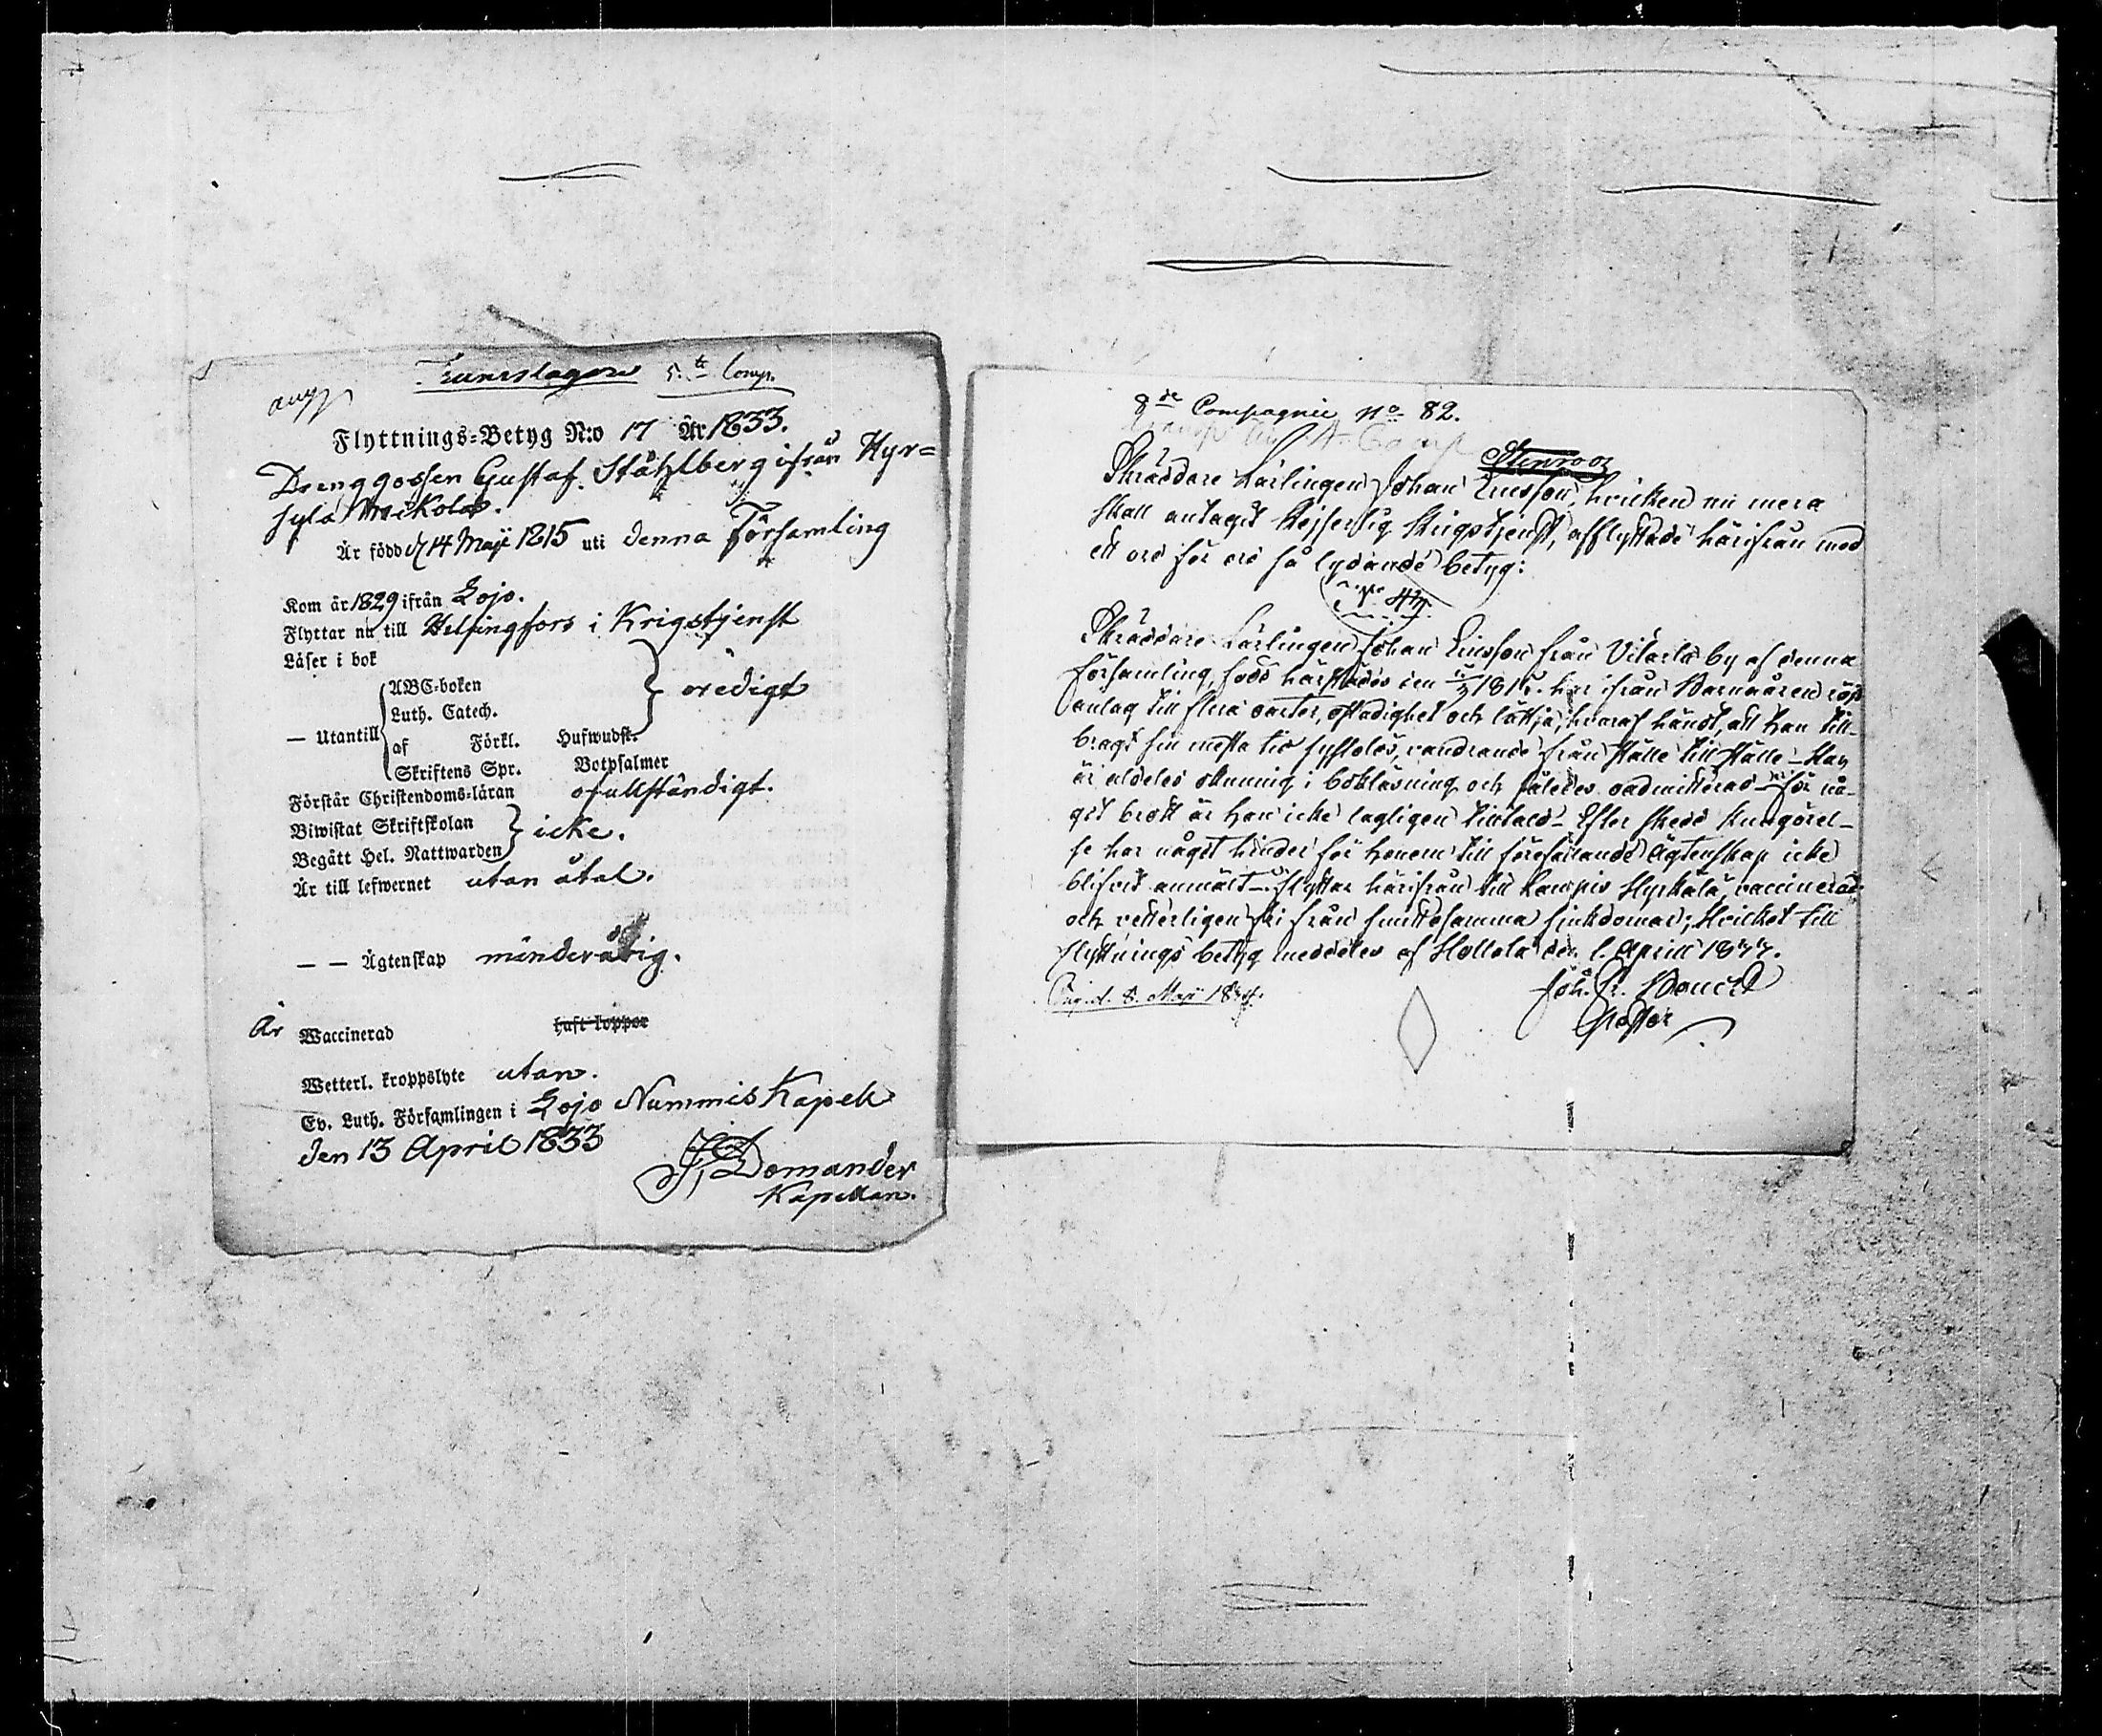 Trumslagare 5.te Comp.
Flyttnings-Betyg N:o 17 År 1833.
Drenggossen Gustaf Ståhlberg ifrån Hyr=
sylä Mikola.
Är född d. 14 Maji 1815 uti denna Församling
Kom år 1829 ifrån Lojo.
Flyttar nu till Helsingfors i Krigstjenst
Läser i bok
ABC-boken
Luth. Catech.
— Utantill af Förkl. Hufwudst. oredigt
Skriftens Spr. Botpsalmer
Förstår Christendoms-läran ofullständigt.
Biwistat Skriftskolan
Begått Hel. Nattwarden icke.
Är till lefwernet utan åtal.
— — Ägtenskap minderårig.
Är Waccinerad haft koppor
Wetterl. kroppslyte utan.
Ev. Luth. Församlingen i Lojo Nummis Kapell
den 13 April 1833
Domander
Kapellan.
8de Compagnie No 82.
Stenroos
Skräddare Lärlingen Johan Ericsson, hvilken nu mera
skall antagit Kejserlig Krigstjenst, afflyttade härifrån med
ett ord för ord så lydande betyg:
Skräddare Lärlingen Johan Ericsson från by af denna
församling, född härstädes den 181 har ifrån Barnaåren röjt
anlag till flera oarter, ostadighet och lättja, hvaraf händt, att han till-
bragt sin mesta tid sysslolös, vandrande från ställe till ställe – Han
är aldeles okunnig i bokläsning och således oadmitterad – för nå-
got brott är han icke lagligen tilltalad – Efter skedd kungörel-
se har något hinder för honom till förefallande Ägtenskap icke
blifvit anmäldt – Flyttar härifrån till Lampis Hyrkälä, vaccinerad
och vetterligen fri från smittosamma sjukdomar; Hvilket till
flyttnings betyg meddelas af Hollola den 1. April 18
Joh. Fr.
Pastor